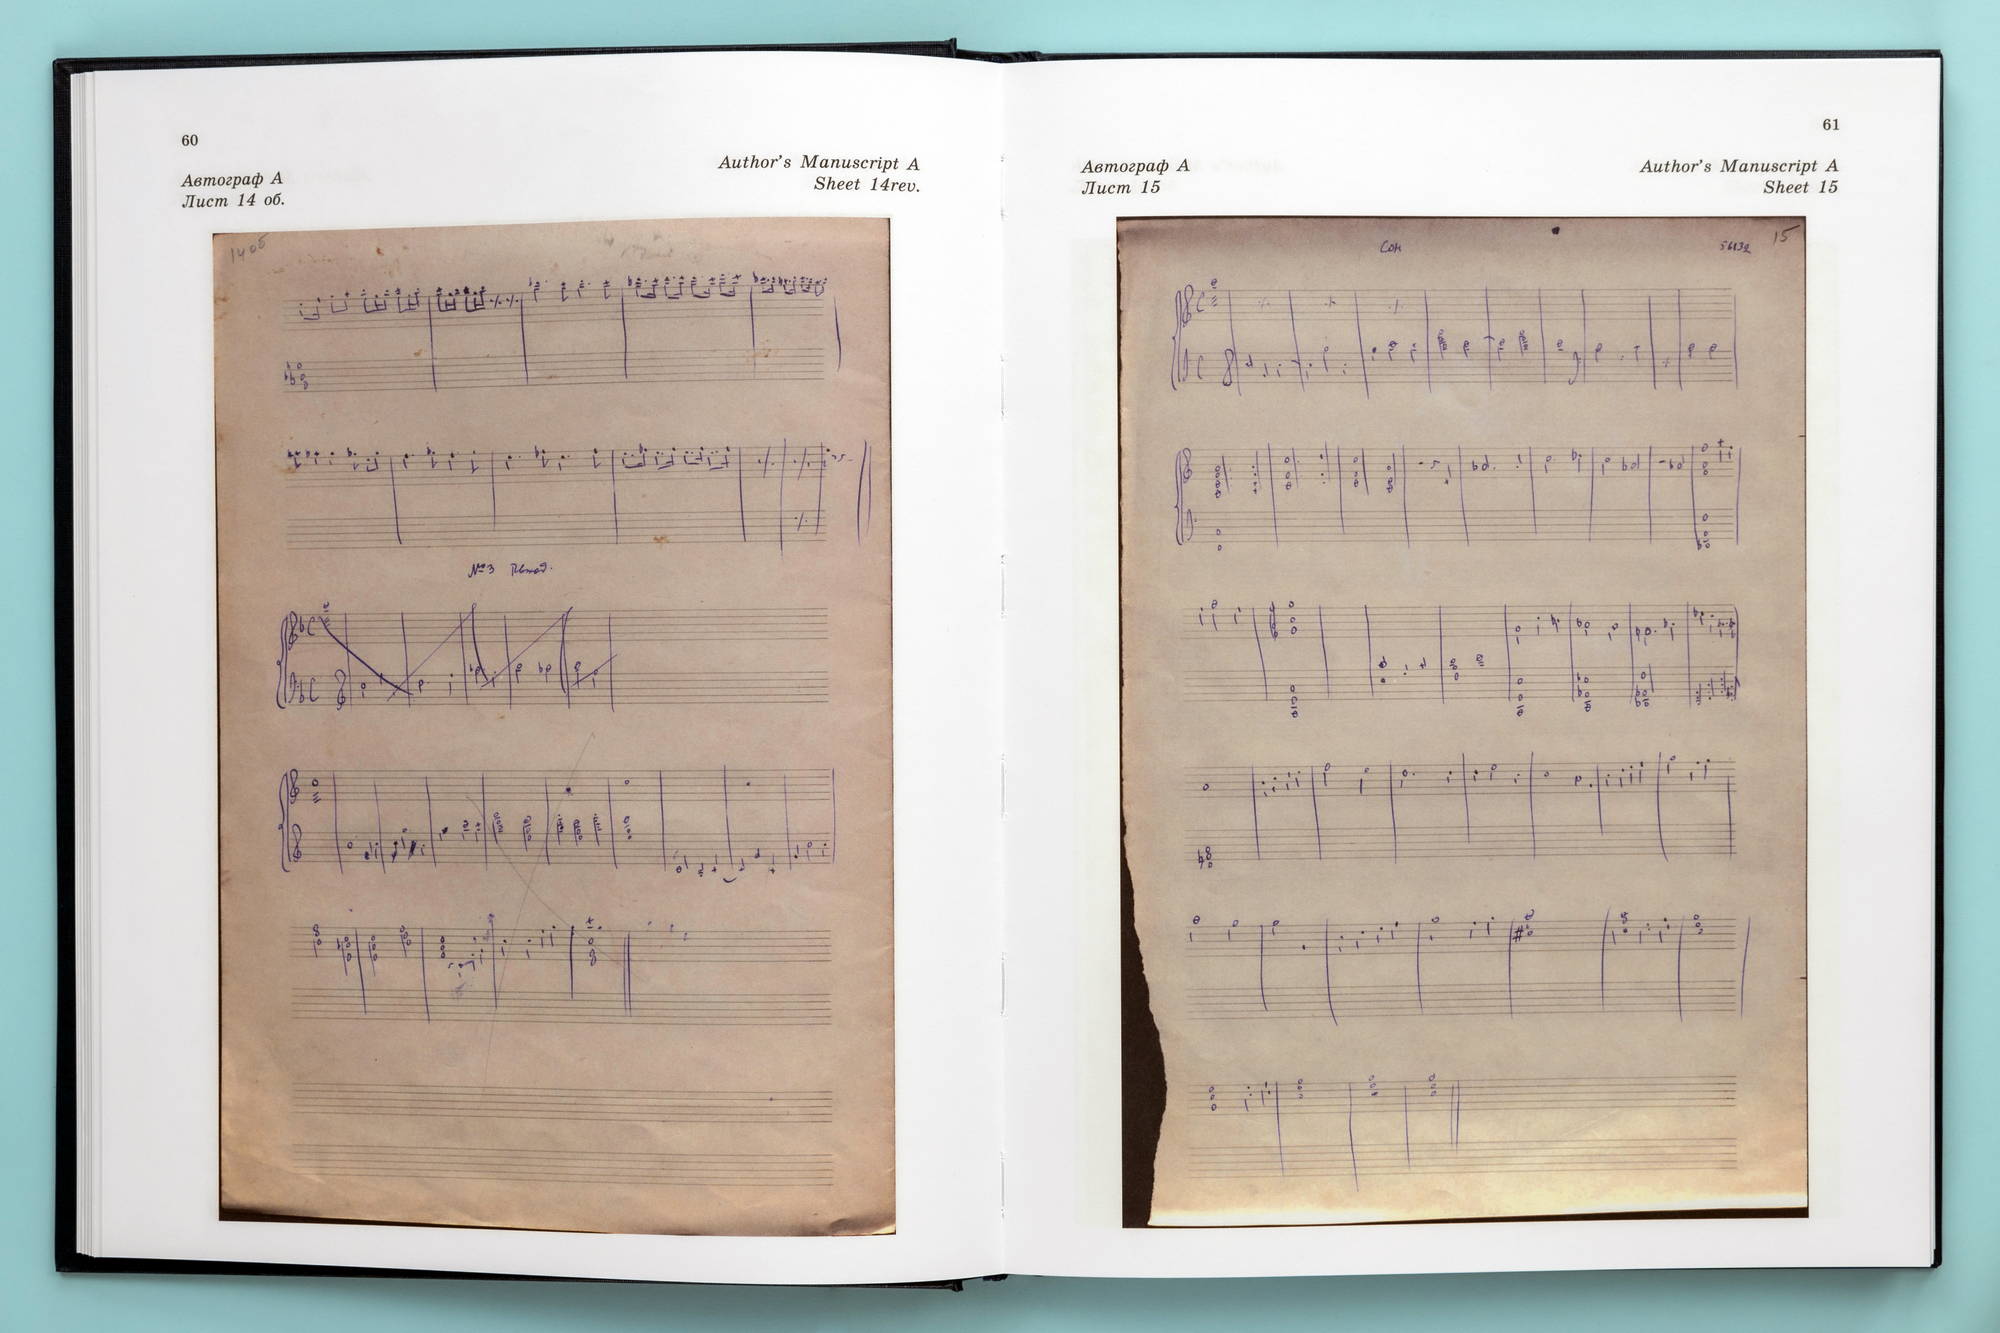 60
Автограф А
Лист 14 об.
Author's Manuscript A
Sheet 14rev.
14 об
№3
61
Автограф А
Лист 15
Author's Manuscript A
Sheet 15
Сон
15